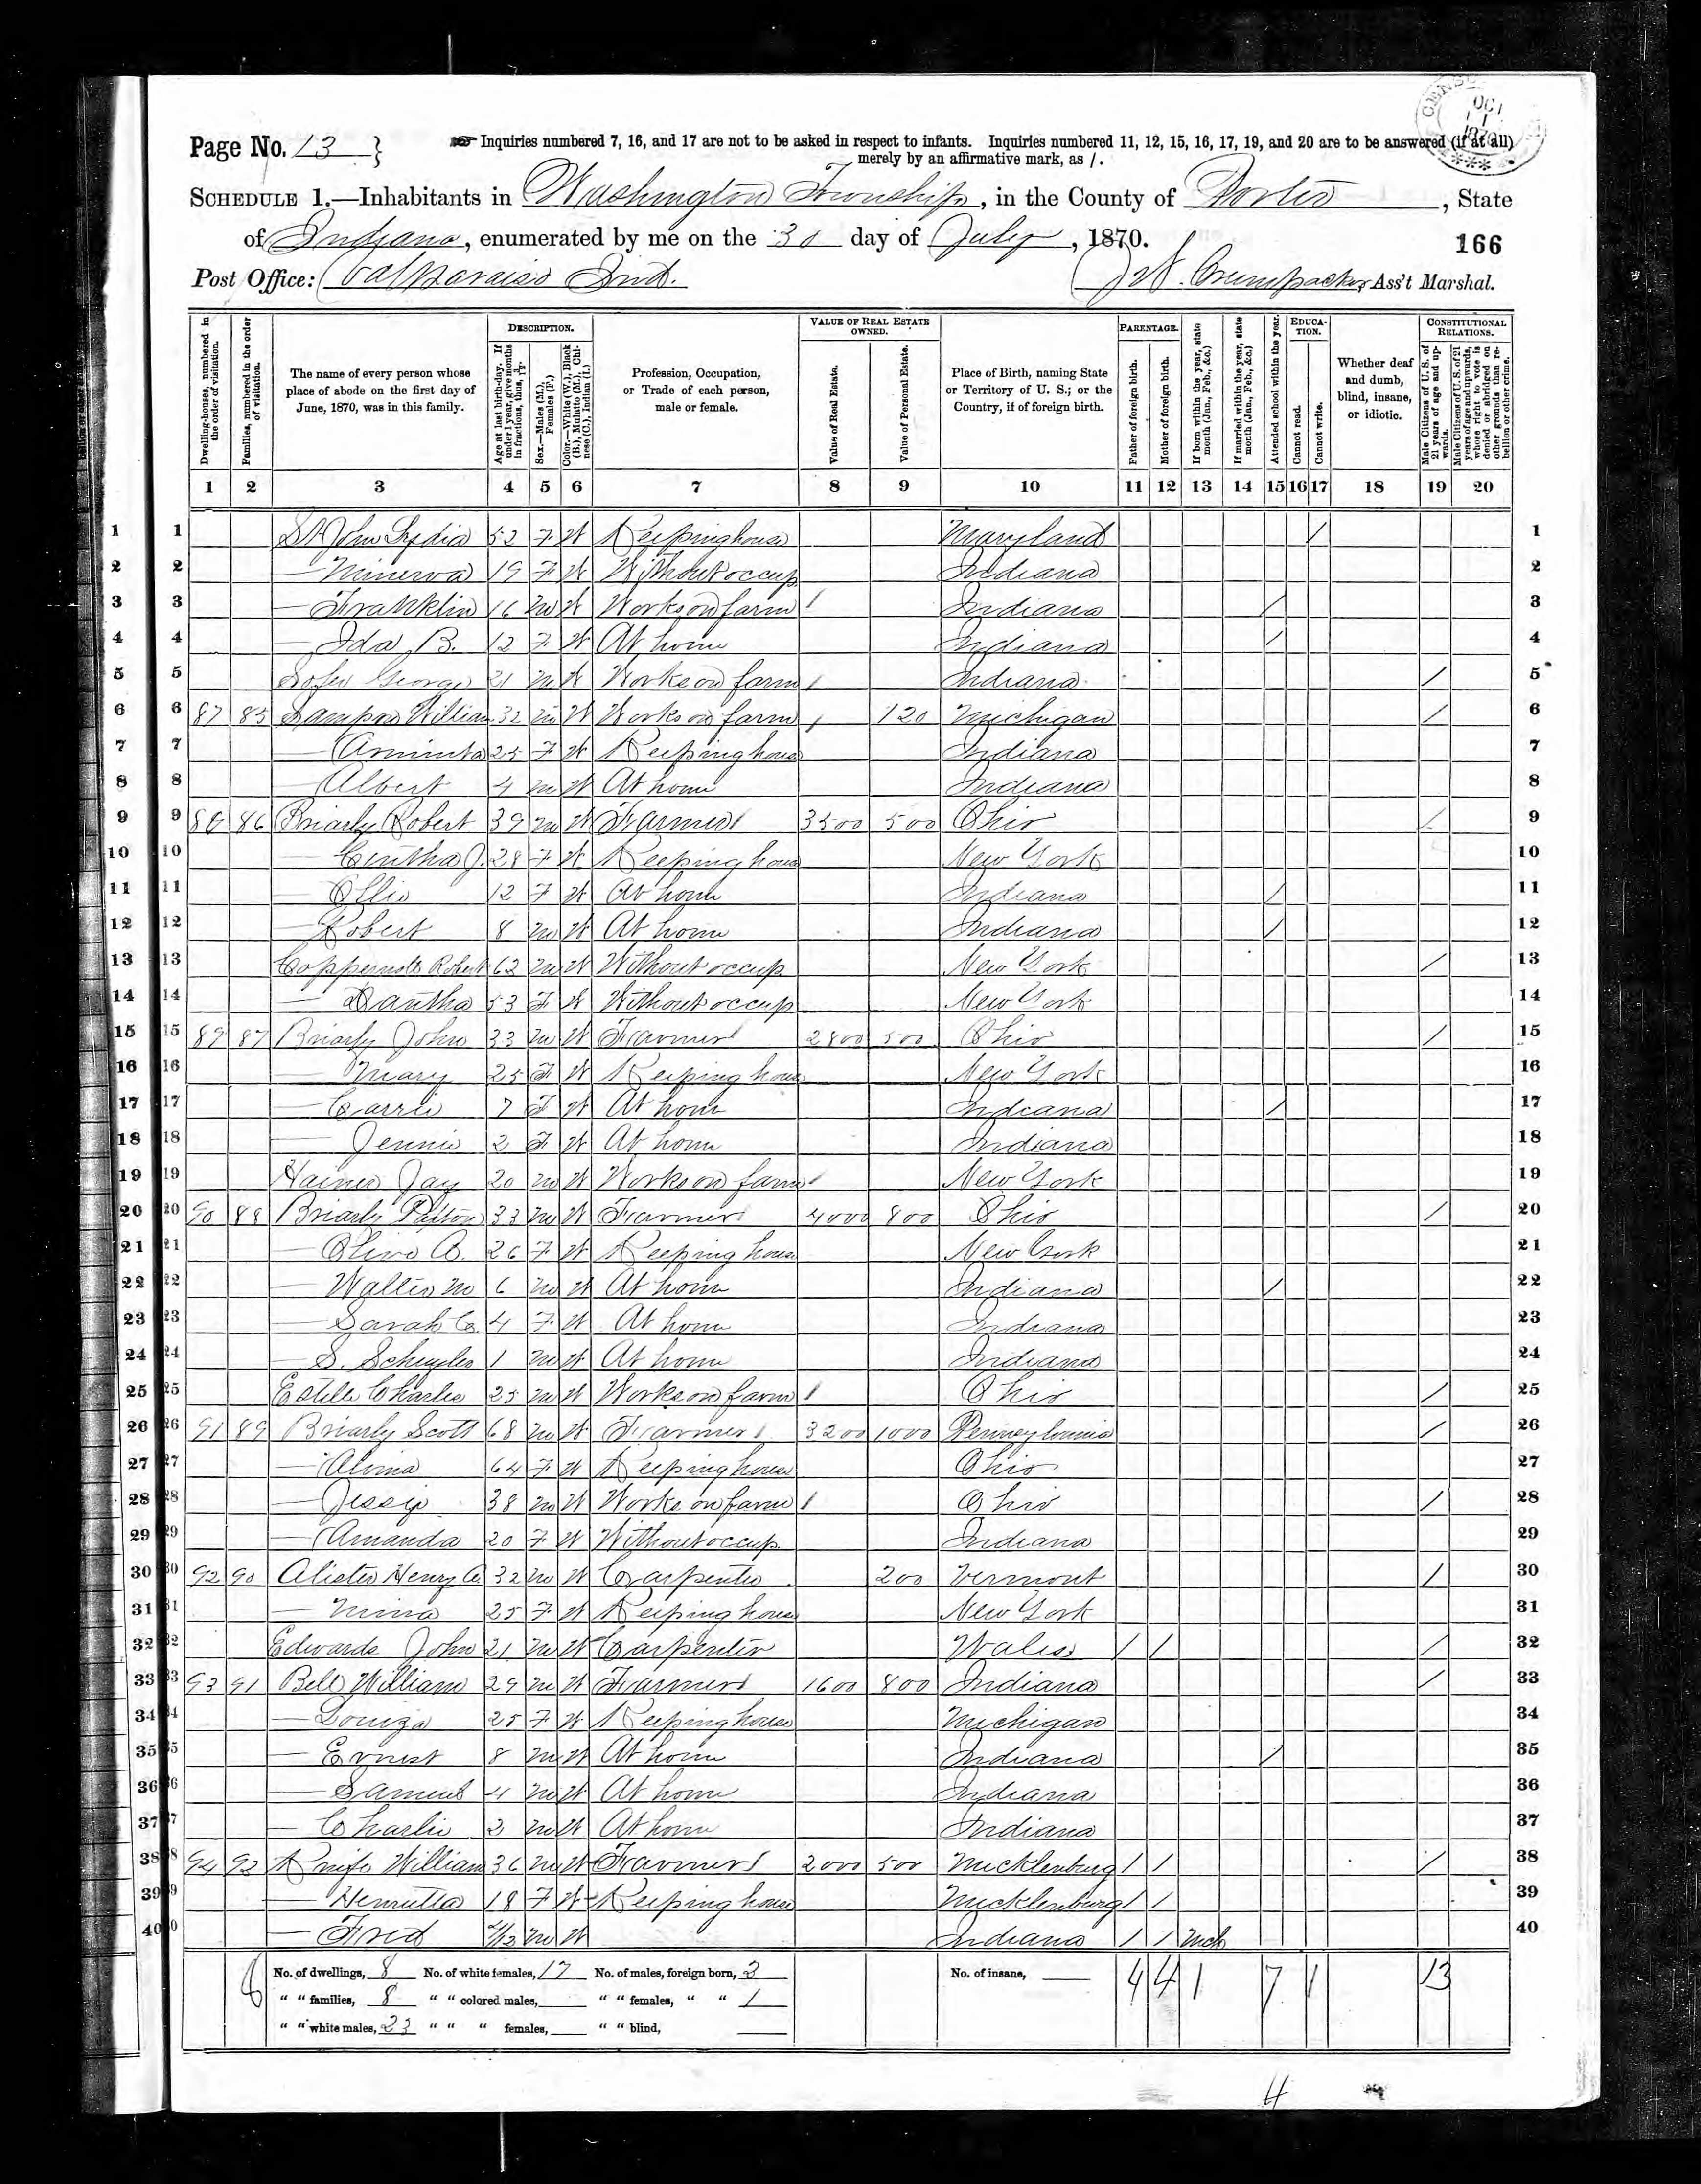 CENSUS OCT 1 1870 ***
Page No. 13 }
Inquiries numbered 7, 16, and 17 are not to be asked in respect to infants. Inquiries numbered 11, 12, 15, 16, 17, 19, and 20 are to be answered (if at all)
merely by an affirmative mark, as /.
SCHEDULE 1.—Inhabitants in Washington Township, in the County of Porter, State
of Indiana, enumerated by me on the 30 day of July, 1870.
166
Post Office: Valparaiso Ind. Crumpacker, Ass't Marshal.
Dwelling-houses, numbered in the order of visitation.
Families, numbered in the order of visitation.
The name of every person whose place of abode on the first day of June, 1870, was in this family.
DESCRIPTION.
Age at last birth-day. If under 1 year, give months in fractions, thus, 3/12.
Sex.—Males (M.), Females (F.)
Color.—White (W.), Black (B.), Mulatto (M.), Chinese (C.), Indian (I.)
Profession, Occupation, or Trade of each person, male or female.
VALUE OF REAL ESTATE OWNED.
Value of Real Estate.
Value of Personal Estate.
Place of Birth, naming State or Territory of U. S.; or the Country, if of foreign birth.
PARENTAGE.
Father of foreign birth.
Mother of foreign birth.
If born within the year, state month (Jan., Feb., &c.)
If married within the year, state month (Jan., Feb., &c.)
Attended school within the year.
EDUCATION.
Cannot read.
Cannot write.
Whether deaf and dumb, blind, insane, or idiotic.
CONSTITUTIONAL RELATIONS.
Male Citizens of U. S. of 21 years of age and upwards.
Male Citizens of U. S. of 21 years of age and upwards, whose right to vote is denied or abridged on other grounds than rebellion or other crime.
1 2 3 4 5 6 7 8 9 10 11 12 13 14 15 16 17 18 19 20
1 1 St John Lydia 52 F W Keeping house Maryland / 1
2 2 — Minerva 19 F W Without occup Indiana 2
3 3 — Franklin 16 M W Works on farm / Indiana / 3
4 4 — Ida B. 12 F W At home Indiana / 4
5 5 George 21 M W Works on farm / Indiana / 5
6 6 87 85 Sampson William 32 M W Works on farm / 120 Michigan / 6
7 7 — Arminta 25 F W Keeping house Indiana 7
8 8 — Albert 4 M W At home Indiana 8
9 9 88 86 Briarly Robert 39 M W Farmer 3500 500 Ohio / 9
10 10 — Cintha J. 28 F W Keeping house New York 10
11 11 — Ollie 12 F W At home Indiana / 11
12 12 — Robert 8 M W At home Indiana / 12
13 13 Robert 62 M W Without occup New York / 13
14 14 — Xantha 53 F W Without occup New York 14
15 15 89 87 Briarly John 33 M W Farmer 2800 500 Ohio / 15
16 16 — Mary 25 F W Keeping house New York 16
17 17 — Carrie 7 F W At home Indiana / 17
18 18 — Jennie 2 F W At home Indiana 18
19 19 Haines Jay 20 M W Works on farm / New York 19
20 20 90 88 Briarly 33 M W Farmer 4000 800 Ohio / 20
21 21 — Olive A. 26 F W Keeping house New York 21
22 22 — Walter M 6 M W At home Indiana / 22
23 23 — Sarah C. 4 F W At home Indiana 23
24 24 — S. Schuyler 1 M W At home Indiana 24
25 25 Estell Charles 25 M W Works on farm / Ohio / 25
26 26 91 89 Briarly Scott 68 M W Farmer 3200 1000 Pennsylvania / 26
27 27 — 64 F W Keeping house Ohio 27
28 28 — 38 M W Works on farm / Ohio / 28
29 29 — Amanda 20 F W Without occup Indiana 29
30 30 92 90 Henry A. 32 M W Carpenter 200 Vermont / 30
31 31 — Nina 25 F W Keeping house New York 31
32 32 Edwards John 21 M W Carpenter Wales / / / 32
33 33 93 91 Bell William 29 M W Farmer 1600 800 Indiana / 33
34 34 — Louiza 25 F W Keeping house Michigan 34
35 35 — Ernest 8 M W At home Indiana / 35
36 36 — Samuel 4 M W At home Indiana 36
37 37 — Charlie 2 M W At home Indiana 37
38 38 94 92 William 36 M W Farmer 2000 500 Mecklenburg / / / 38
39 39 — Henrietta 18 F W Keeping house Mecklenburg / / 39
40 40 — Fred M W Indiana / / Mch 40
No. of dwellings, 8 No. of white females, 17 No. of males, foreign born, 2 No. of insane,
" " families, 8 " " colored males, " " females, " " 1
" " white males, 23 " " " females, " " blind,
4 4 1 7 1 13
4